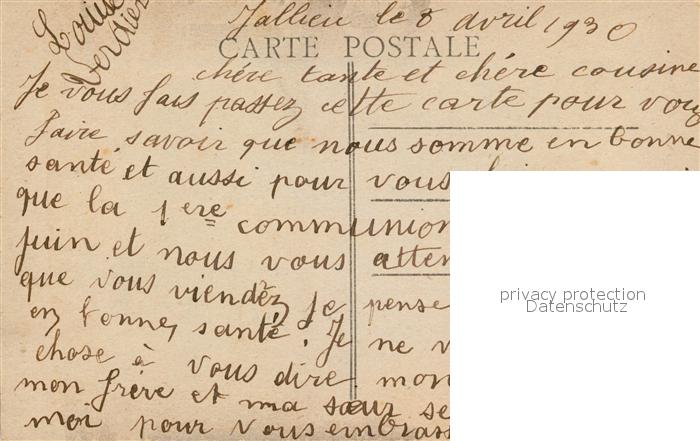 Louise
Verdier
Jallieu le 8 avril 1930
CARTE POSTALE
chére tante et chére cousine
Je vous fais passez cette carte pour vous
faire savoir que nous somme en bonne
santé et aussi pour vous
que la 1ere communion
juin et nous vous atten
que vous viendéz je pense
en bonne santé. Je ne v
chose à vous dire mon
mon frére et ma sœur se
moi pour vous embrass
privacy protection
Datenschutz